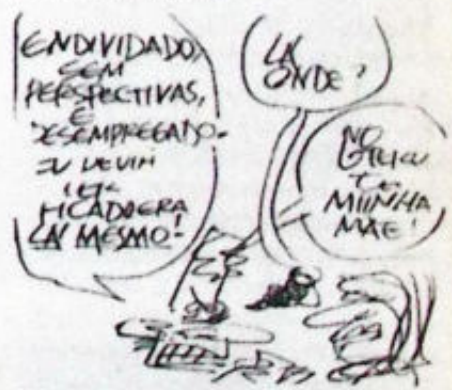 ENDIVIDADO,
SEM
PERSPECTIVAS,
E
DESEMPREGADO.
EU DEVIA
TER
FICADO ERA
LÁ MESMO!
LÁ
ONDE?
NO
DE
MIINHA
MÃE!